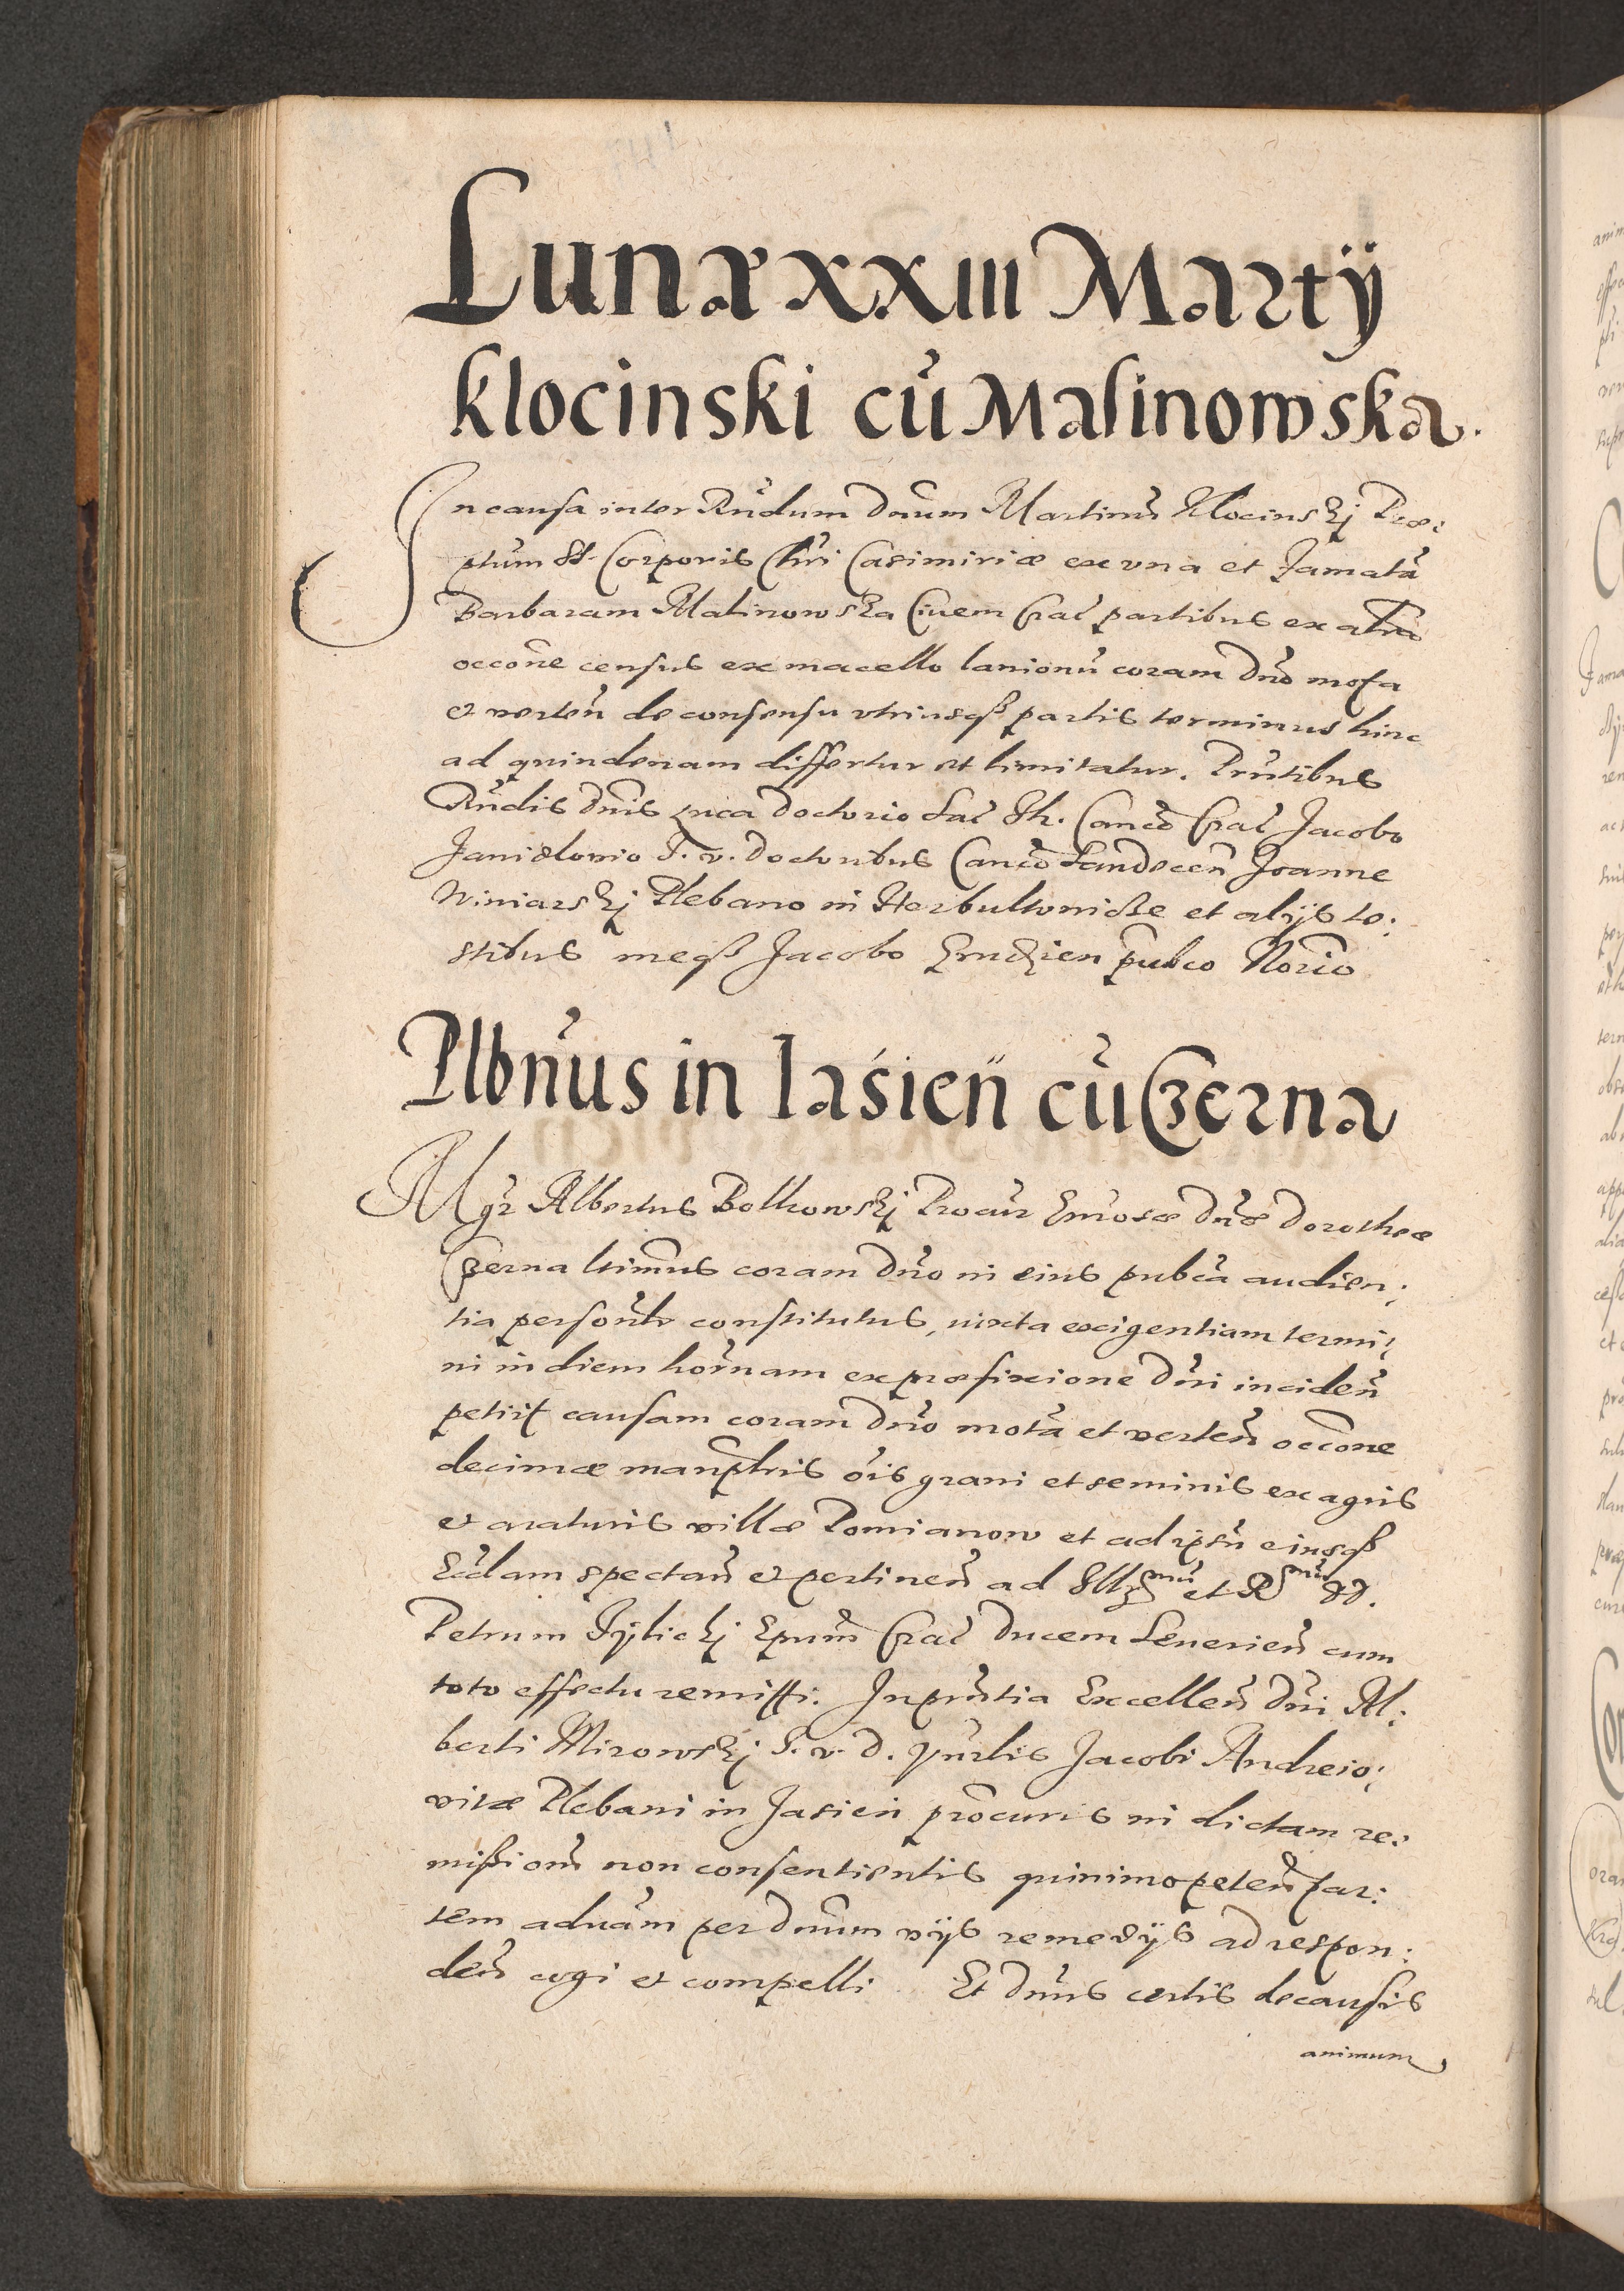 Lunæ XXIII Martÿ
klocinski cũ Malinowska.
In causa inter Rñdum Dnum Martinũ Klocinskj Præ:
ptum St. Corporis Chri Casimiriæ ex vna et Famatã
Barbaram Malinowska Ciuem Crac partibus ex altrã
occõne census ex macello lanionũ coram Dño mota
et verteñ de consensu vtriusqß partis terminus hinc
ad quindenam differtur et limitatur. Pñtibus
Rñdis Dñis Luca Doctorio Sac Th. Canco Crac Jacobo
Janidlovio J. v. Doctoribus Canco Sandeceñ Joanne
Winiarskj Plebano in Herbultowicze et alijs te:
stibus meqß Jacobo publco Norio
Plbnũs in Iasień cũ Czerna
Mgr Albertus Bolkowskj Procur Gñosæ Dñæ Dorotheæ
Czerna ltimus coram Dño in eius publca audien:
tia personlr constitutus, iuxta exigentiam termi:
ni in diem hornam ex præfixione Dñi incideñ
petijt causam coram Dño motã et verteñ occõne
decimæ manplris õis grani et seminis ex agris
et araturis villæ Pomianow et ad ipsũ eiusqß
Eccl̃am spectañ et pertineñ ad Illr̃mũ et Rmũ DD.
Petrum Tÿlickj Epum̃ Crac Ducem Seuerieñ cum
toto effectu remitti. In pñtia Excelleñ Dñi Al:
berti Mirowskj J. v. D. Vñrlis Jacobi Andreio:
vitæ Plebani in Jasień procuris in dictam re:
mißionẽ non consentientis quinimo peteñ par:
tem aduam per Dnum vijs remedijs ad respon:
deñ cogi et compelli Et Dnus certis de causis
animum